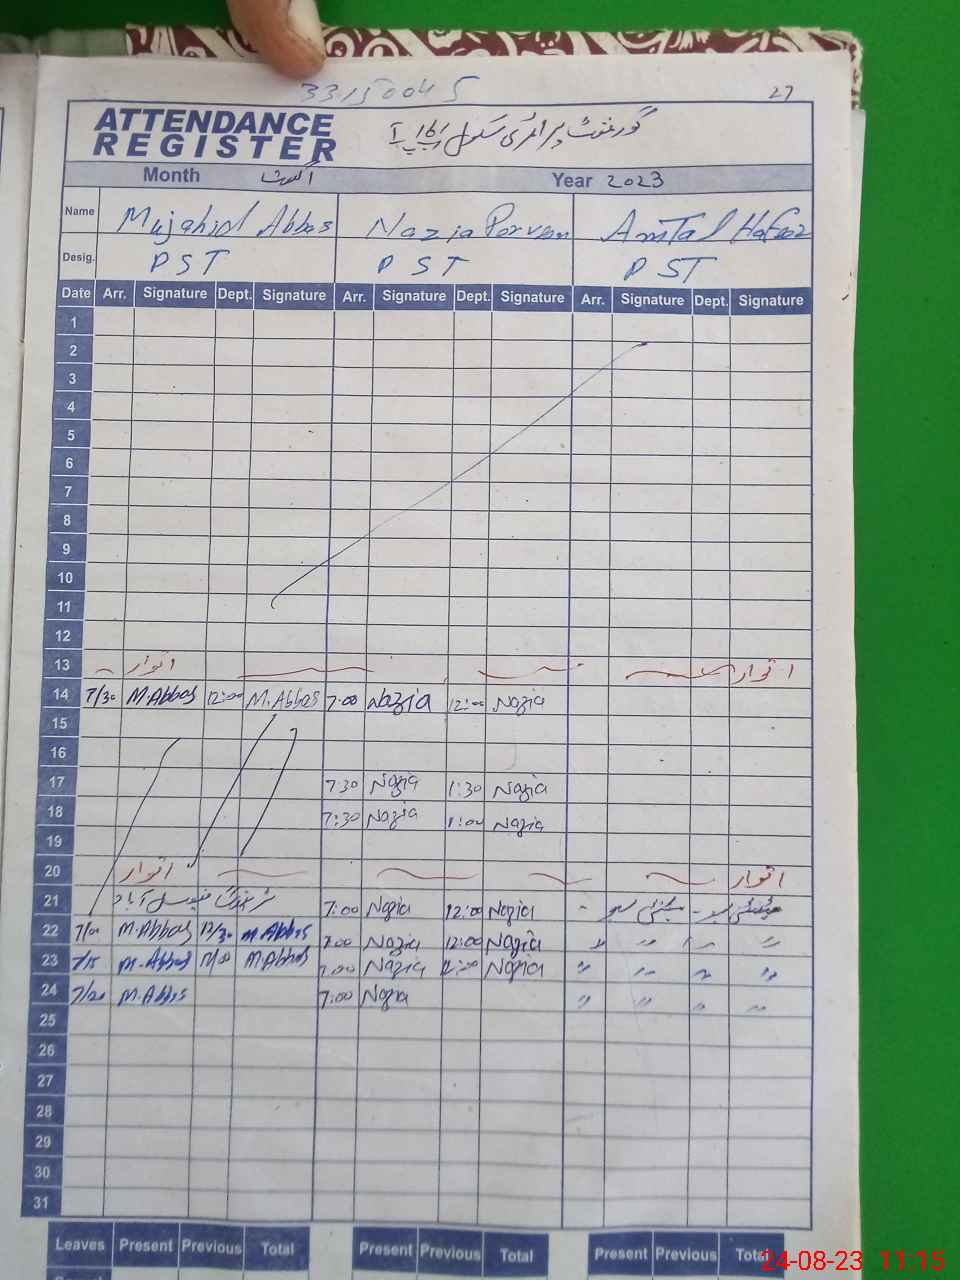 33150045
27
ATTENDANCE REGISTER گورنمنٹ پرائمری سکول
Month اگست Year 2023
Name Mujahid Abbas Nazia Parveen Amtal Hafeez
Desig. PST PST PST
Date Arr. Signature Dept. Signature Arr. Signature Dept. Signature Arr. Signature Dept. Signature
1
2
3
4
5
6
7
8
9
10
11
12
13 اتوار اتوار
14 7/30 M.Abbas 12:00 M.Abbas 7:00 Nazia 12:00 Nazia
15
16
17 7:30 Nazia 1:30 Nazia
18 7:30 Nazia 1:00 Nazia
19
20 اتوار اتوار
21 فیصل آباد 7:00 Nazia 12:00 Nazia
22 7/00 M.Abbas 12/30 M.Abbas 7:00 Nazia 12:00 Nazia 〃 〃 〃 〃
23 7/15 M.Abbas 12/00 M.Abbas 7:00 Nazia 12:00 Nazia 〃 〃 〃 〃
24 7/20 M.Abbas 7:00 Nazia 〃 〃 〃 〃
25
26
27
28
29
30
31
Leaves Present Previous Total Present Previous Total Present Previous Total
24-08-23 11:15